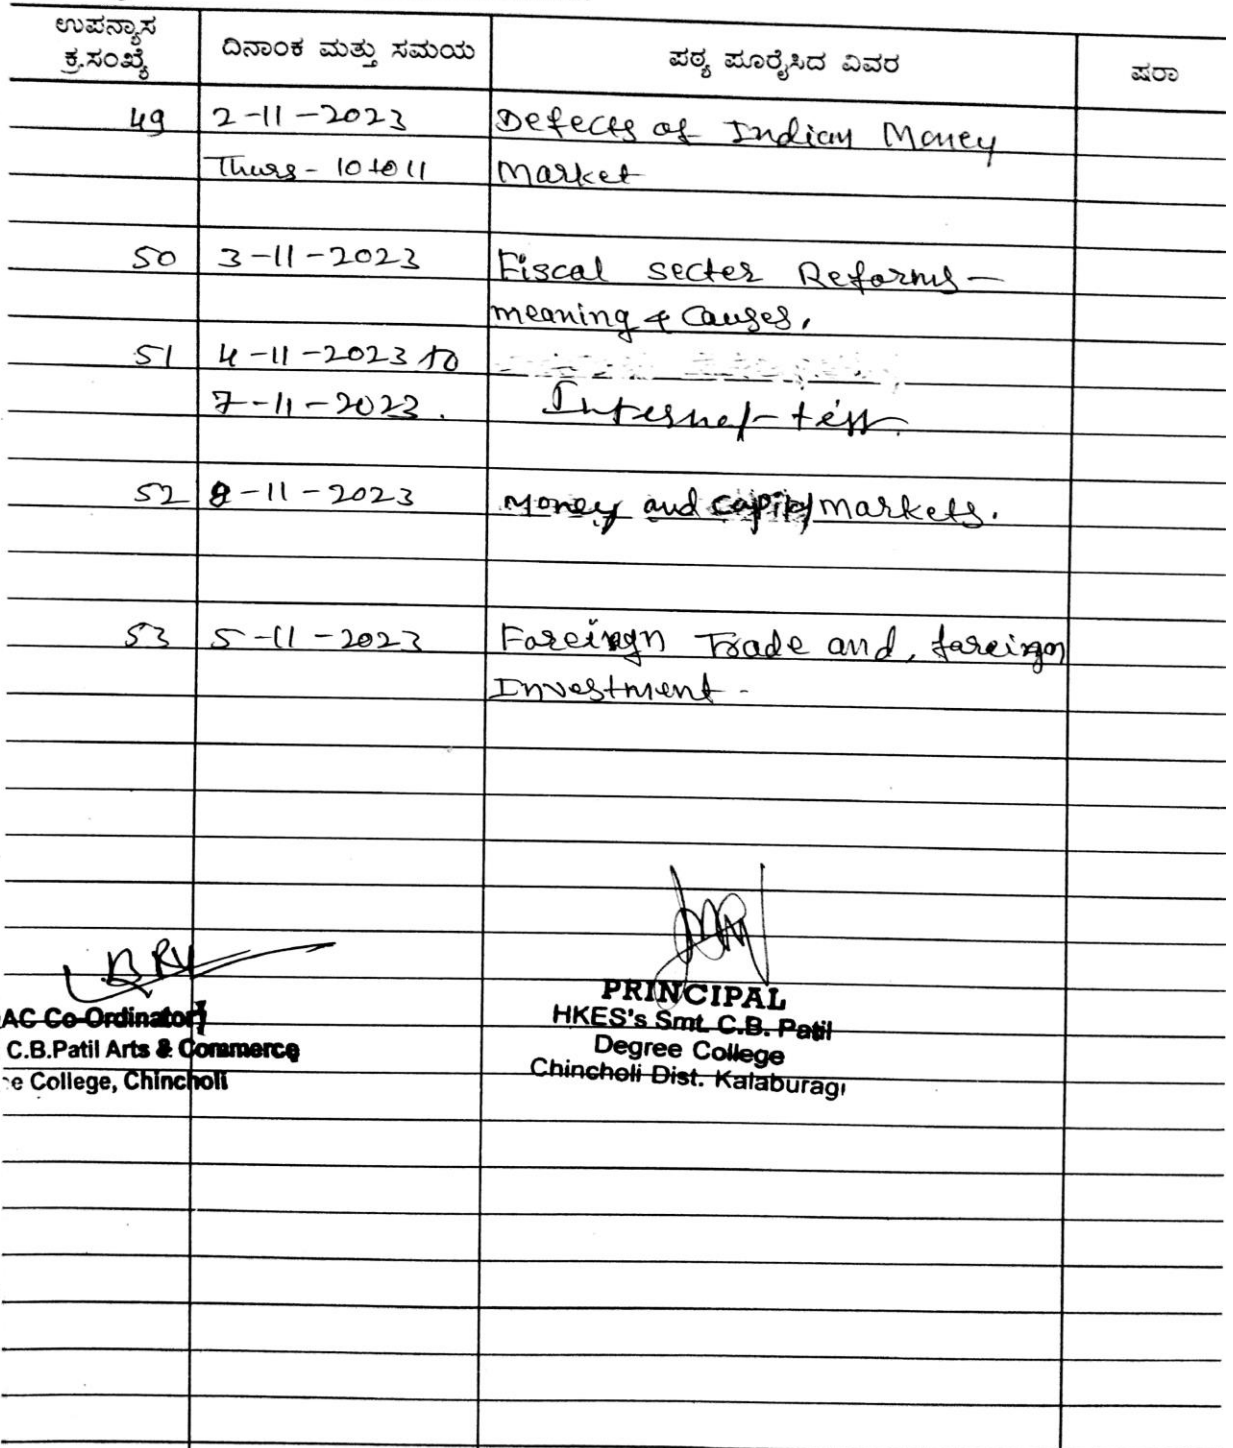 ಉಪನ್ಯಾಸ ಕ್ರ.ಸಂಖ್ಯೆ ದಿನಾಂಕ ಮತ್ತು ಸಮಯ ಪಠ್ಯ ಪೂರೈಸಿದ ವಿವರ ಷರಾ
49 2-11-2023 Defects of Indian Money
Thurs- 10 to 11 Market
50 3-11-2023 Fiscal secter Reforms-
meaning & Causes.
51 4-11-2023 to
7-11-2023. Internal test
52 8-11-2023 Money and capital markets.
53 5-11-2023 Foreingn Trade and, foreingn
Investment -
AC Co-Ordinator
C.B.Patil Arts & Commerce
e College, Chincholi
PRINCIPAL
HKES's Smt. C.B. Patil
Degree College
Chincholi Dist. Kalaburagi